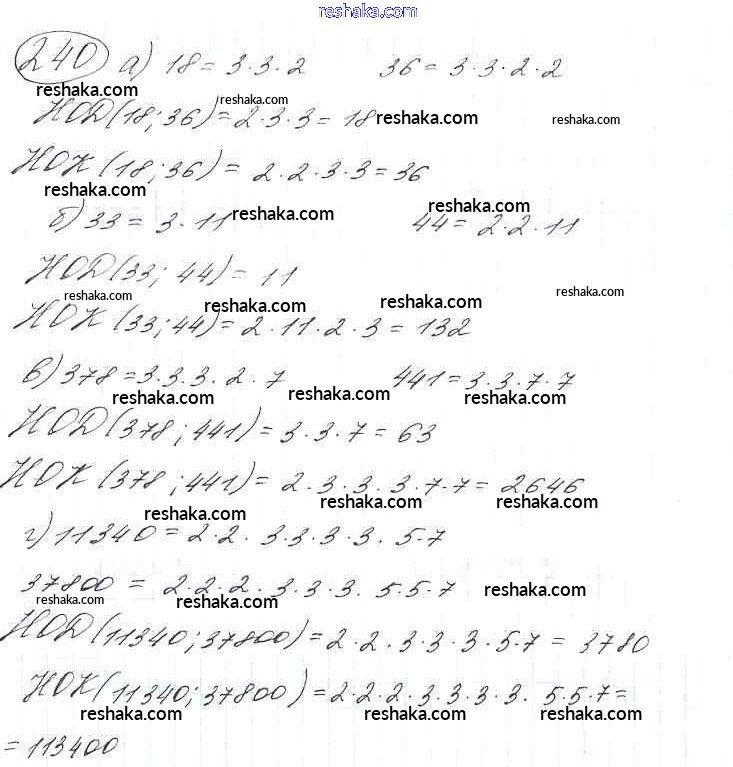 reshaka.com
240 а) 18 = 3·3·2 36 = 3·3·2·2
reshaka.com reshaka.com
НОД(18;36) = 2·3·3 = 18 reshaka.com reshaka.com
НОК(18;36) = 2·2·3·3 = 36
reshaka.com reshaka.com
б) 33 = 3·11 reshaka.com 44 = 2·2·11
НОД(33; 44) = 11
reshaka.com reshaka.com reshaka.com reshaka.com
НОК(33;44) = 2·11·2·3 = 132
в) 378 = 3·3·3·2·7 441 = 3·3·7·7
reshaka.com reshaka.com reshaka.com
НОД(378;441) = 3·3·7 = 63
НОК(378;441) = 2·3·3·3·7·7 = 2646
reshaka.com reshaka.com reshaka.com
г) 11340 = 2·2·3·3·3·3·5·7
37800 = 2·2·2·3·3·3·5·5·7 reshaka.com
reshaka.com reshaka.com
НОД(11340;37800) = 2·2·3·3·3·5·7 = 3780
НОК(11340;37800) = 2·2·2·3·3·3·3·5·5·7 =
reshaka.com reshaka.com reshaka.com
= 113400